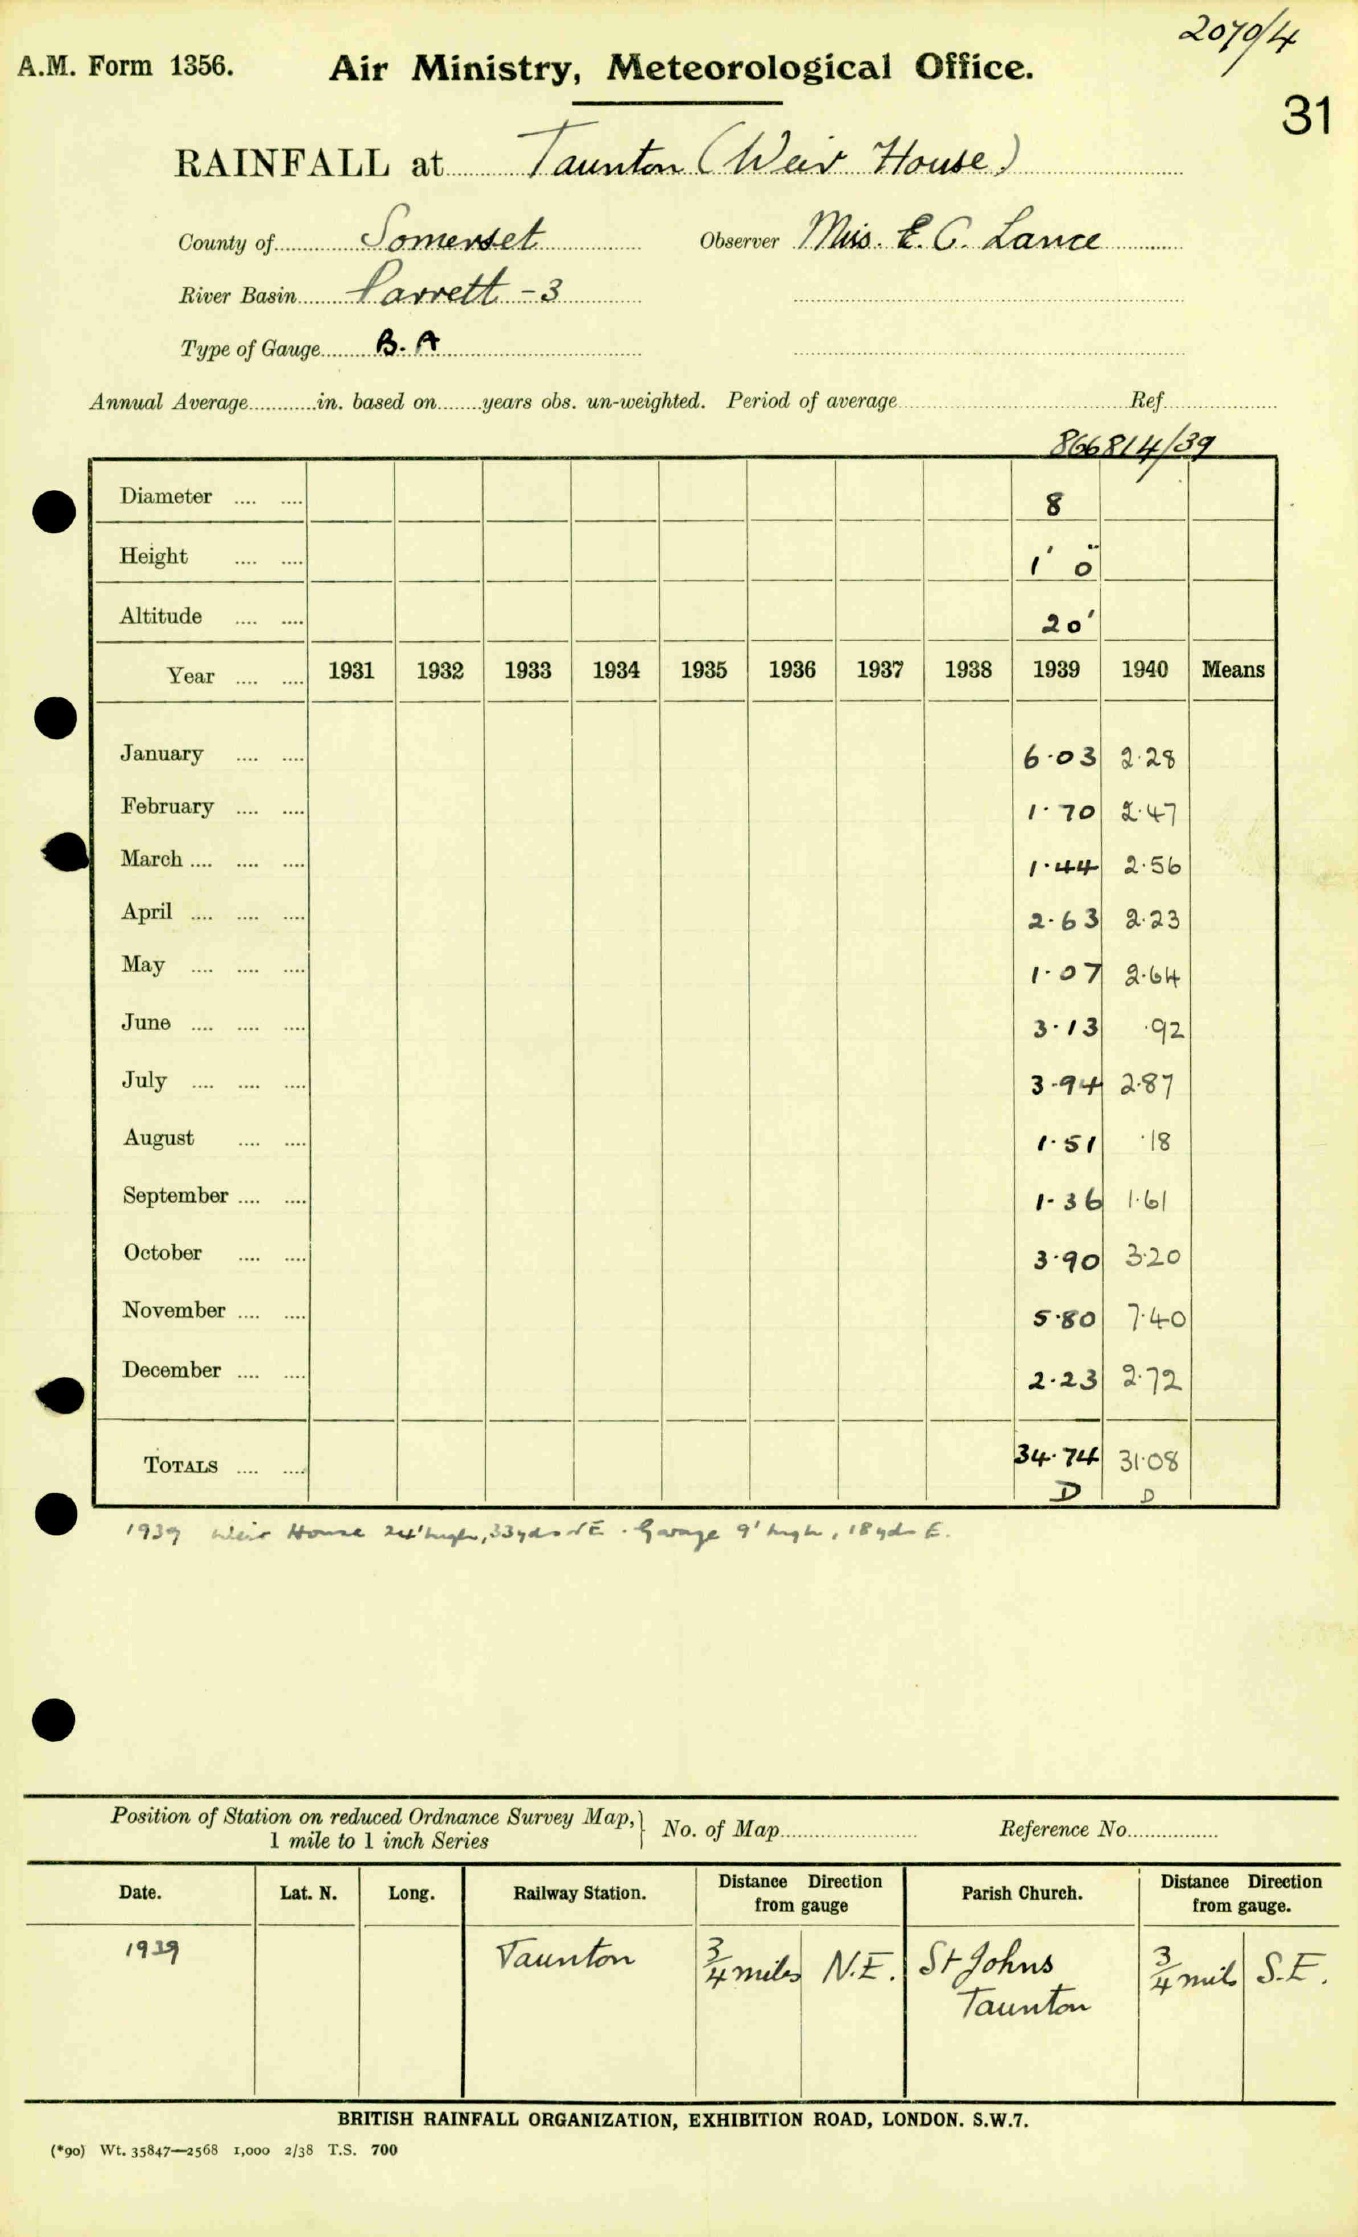 2070/4
A.M. Form 1356. Air Ministry, Meteorological Office.
31
RAINFALL at Taunton (Weir House)
County of Somerset Observer Miss. E. C. Lance
River Basin Parrett - 3
Type of Gauge B. A
Annual Average in. based on years obs. un-weighted. Period of average Ref.
866814/39
Diameter .... .... 8
Height .... .... 1' 0"
Altitude .... .... 20'
Year .... .... 1931 1932 1933 1934 1935 1936 1937 1938 1939 1940 Means
January .... .... 6·03 2·28
February .... .... 1·70 2·47
March .... .... .... 1·44 2·56
April .... .... .... 2·63 2·23
May .... .... .... 1·07 2·64
June .... .... .... 3·13 ·92
July .... .... .... 3·94 2·87
August .... .... 1·51 ·18
September .... .... 1·36 1·61
October .... .... 3·90 3·20
November .... .... 5·80 7·40
December .... .... 2·23 2·72
TOTALS .... .... 34·74 31·08
D D
1939 Weir House 24' high, 33 yds NE. Garage 9' high, 18 yds E.
Position of Station on reduced Ordnance Survey Map, } No. of Map Reference No.
1 mile to 1 inch Series
Date. Lat. N. Long. Railway Station. Distance Direction from gauge Parish Church. Distance Direction from gauge.
1939 Taunton 3/4 miles N.E. St Johns 3/4 mile S.E.
Taunton
BRITISH RAINFALL ORGANIZATION, EXHIBITION ROAD, LONDON. S.W.7.
(*90) Wt. 35847—2568 1,000 2/38 T.S. 700